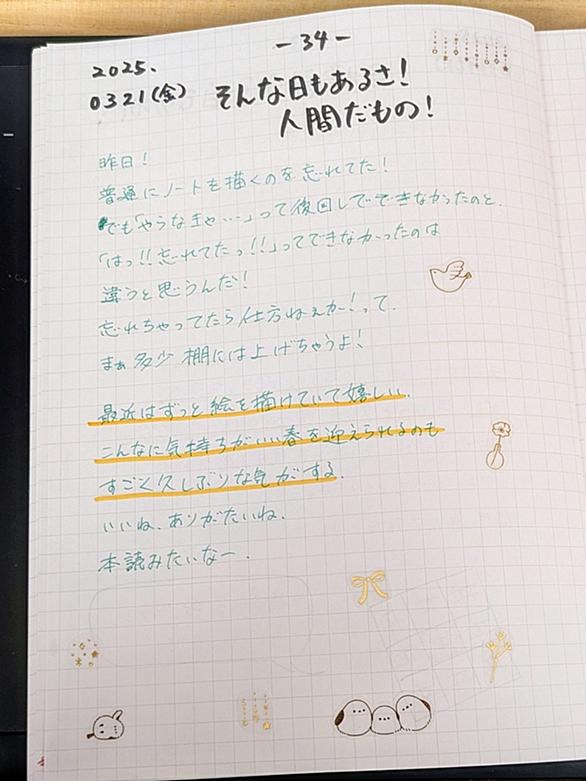 -34-
2025.
0321(金)
そんな日もあるさ!
人間だもの!
昨日!
普通にノートを描くのを忘れてた!
でも「やらなきゃ…」って後回しでできなかったのと、
「はっ!!忘れてたっ!!」ってできなかったのは
違うと思うんだ!
忘れちゃってたら仕方ねぇかー!って、
まぁ多少棚には上げちゃうよ!
最近はずっと絵を描けていて嬉しい。
こんなに気持ちがいい春を迎えられるのも
すごく久しぶりな気がする。
いいね、ありがたいね。
本読みたいなー。